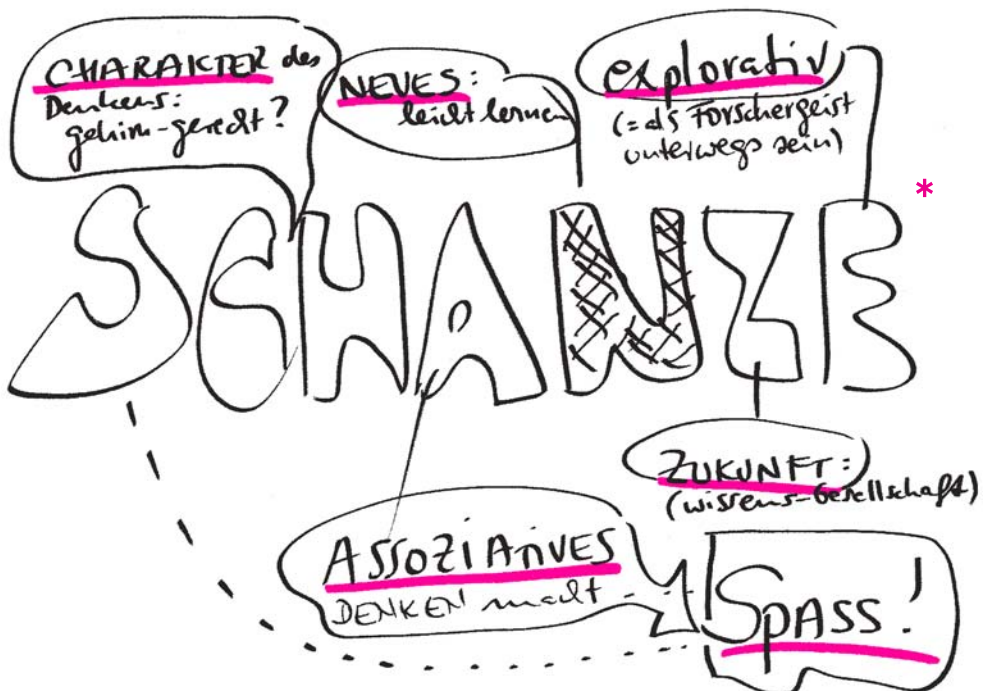 CHARAKTER des
Denkens:
gehirn-gerecht?
NEUES:
leicht lernen
explorativ
(= als Forschergeist
unterwegs sein)
SCHANZE *
ZUKUNFT:
(wissens-Gesellschaft)
ASSOZIATIVES
DENKEN macht...
SPASS!